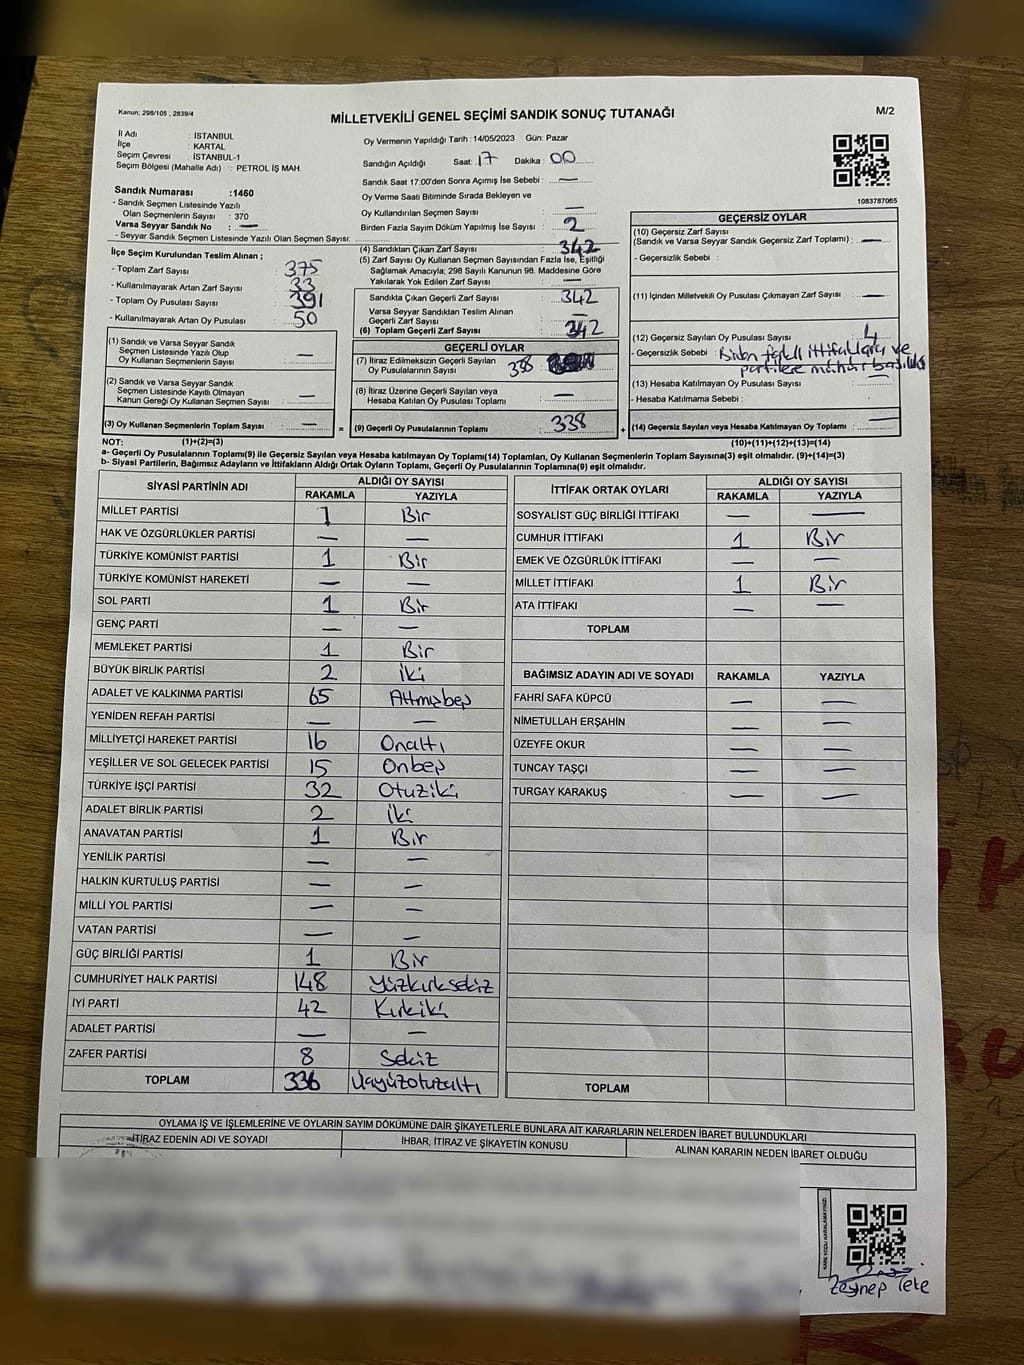 Kanun; 298/105 , 2839/4
MİLLETVEKİLİ GENEL SEÇİMİ SANDIK SONUÇ TUTANAĞI
M/2
İl Adı : İSTANBUL
İlçe : KARTAL
Seçim Çevresi : İSTANBUL-1
Seçim Bölgesi (Mahalle Adı) : PETROL İŞ MAH.
Sandık Numarası :1460
- Sandık Seçmen Listesinde Yazılı
Olan Seçmenlerin Sayısı : 370
Varsa Seyyar Sandık No : —
- Seyyar Sandık Listesinde Yazılı Olan Seçmen Sayısı:
İlçe Seçim Kurulundan Teslim Alınan ;
- Toplam Zarf Sayısı 375
- Kullanılmayarak Artan Zarf Sayısı : 33
- Toplam Oy Pusulası Sayısı 391
- Kullanılmayarak Artan Oy Pusulası : 50
(1) Sandık ve Varsa Seyyar Sandık
Seçmen Listesinde Yazılı Olup
Oy Kullanan Seçmenlerin Sayısı : —
(2) Sandık ve Varsa Seyyar Sandık
Seçmen Listesinde Kayıtlı Olmayan
Kanun Gereği Oy Kullanan Seçmen Sayısı : —
(3) Oy Kullanan Seçmenlerin Toplam Sayısı : —
Oy Vermenin Yapıldığı Tarih : 14/05/2023 Gün: Pazar
Sandığın Açıldığı Saat: 17 Dakika : 00
Sandık Saat 17:00'den Sonra Açımış İse Sebebi : —
Oy Verme Saati Bitiminde Sırada Bekleyen ve
Oy Kullandırılan Seçmen Sayısı : —
Birden Fazla Sayım Döküm Yapılmış İse Sayısı : 2
(4) Sandıktan Çıkan Zarf Sayısı : 342
(5) Zarf Sayısı Oy Kullanan Seçmen Sayısından Fazla İse, Eşitliği
Sağlamak Amacıyla; 298 Sayılı Kanunun 98. Maddesine Göre
Yakılarak Yok Edilen Zarf Sayısı : —
Sandıkta Çıkan Geçerli Zarf Sayısı : 342
Varsa Seyyar Sandıktan Teslim Alınan
Geçerli Zarf Sayısı : —
(6) Toplam Geçerli Zarf Sayısı : 342
GEÇERLİ OYLAR
(7) İtiraz Edilmeksizin Geçerli Sayılan
Oy Pusulalarının Sayısı 338
(8) İtiraz Üzerine Geçerli Sayılan veya
Hesaba Katılan Oy Pusulası Toplamı : —
= (9) Geçerli Oy Pusulalarının Toplamı : 338 +
1083787065
GEÇERSİZ OYLAR
(10) Geçersiz Zarf Sayısı
(Sandık ve Varsa Seyyar Sandık Geçersiz Zarf Toplamı) : —
- Geçersizlik Sebebi :
(11) İçinden Milletvekili Oy Pusulası Çıkmayan Zarf Sayısı : —
(12) Geçersiz Sayılan Oy Pusulası Sayısı : 4
- Geçersizlik Sebebi : Birden fazla ittifaklara ve
partilere mühür
(13) Hesaba Katılmayan Oy Pusulası Sayısı : —
- Hesaba Katılmama Sebebi :
(14) Geçersiz Sayılan veya Hesaba Katılmayan Oy Toplamı : —
NOT: (1)+(2)=(3) (10)+(11)+(12)+(13)=(14)
a- Geçerli Oy Pusulalarının Toplamı(9) ile Geçersiz Sayılan veya Hesaba katılmayan Oy Toplamı(14) Toplamları, Oy Kullanan Seçmenlerin Toplam Sayısına(3) eşit olmalıdır. (9)+(14)=(3)
b- Siyasi Partilerin, Bağımsız Adayların ve İttifakların Aldığı Ortak Oyların Toplamı, Geçerli Oy Pusulalarının Toplamına(9) eşit olmalıdır.
SİYASİ PARTİNİN ADI ALDIĞI OY SAYISI
RAKAMLA YAZIYLA
MİLLET PARTİSİ 1 Bir
HAK VE ÖZGÜRLÜKLER PARTİSİ — —
TÜRKİYE KOMÜNİST PARTİSİ 1 Bir
TÜRKİYE KOMÜNİST HAREKETİ — —
SOL PARTİ 1 Bir
GENÇ PARTİ — —
MEMLEKET PARTİSİ 1 Bir
BÜYÜK BİRLİK PARTİSİ 2 iki
ADALET VE KALKINMA PARTİSİ 65 Altmışbeş
YENİDEN REFAH PARTİSİ — —
MİLLİYETÇİ HAREKET PARTİSİ 16 Onaltı
YEŞİLLER VE SOL GELECEK PARTİSİ 15 Onbeş
TÜRKİYE İŞÇİ PARTİSİ 32 Otuziki
ADALET BİRLİK PARTİSİ 2 iki
ANAVATAN PARTİSİ 1 Bir
YENİLİK PARTİSİ — —
HALKIN KURTULUŞ PARTİSİ — —
MİLLİ YOL PARTİSİ — —
VATAN PARTİSİ — —
GÜÇ BİRLİĞİ PARTİSİ 1 Bir
CUMHURİYET HALK PARTİSİ 148 Yüzkırksekiz
İYİ PARTİ 42 Kırkiki
ADALET PARTİSİ — —
ZAFER PARTİSİ 8 Sekiz
TOPLAM 336 Üçyüzotuzaltı
İTTİFAK ORTAK OYLARI ALDIĞI OY SAYISI
RAKAMLA YAZIYLA
SOSYALİST GÜÇ BİRLİĞİ İTTİFAKI — —
CUMHUR İTTİFAKI 1 Bir
EMEK VE ÖZGÜRLÜK İTTİFAKI — —
MİLLET İTTİFAKI 1 Bir
ATA İTTİFAKI — —
TOPLAM
BAĞIMSIZ ADAYIN ADI VE SOYADI RAKAMLA YAZIYLA
FAHRİ SAFA KÜPCÜ — —
NİMETULLAH ERŞAHİN — —
ÜZEYFE OKUR — —
TUNCAY TAŞÇI — —
TURGAY KARAKUŞ — —
TOPLAM
OYLAMA İŞ VE İŞLEMLERİNE VE OYLARIN SAYIM DÖKÜMÜNE DAİR ŞİKAYETLERLE BUNLARA AİT KARARLARIN NELERDEN İBARET BULUNDUKLARI
İTİRAZ EDENİN ADI VE SOYADI İHBAR, İTİRAZ VE ŞİKAYETİN KONUSU ALINAN KARARIN NEDEN İBARET OLDUĞU
KARE KODU KARALAMAYINIZ!
Zeynep Teke